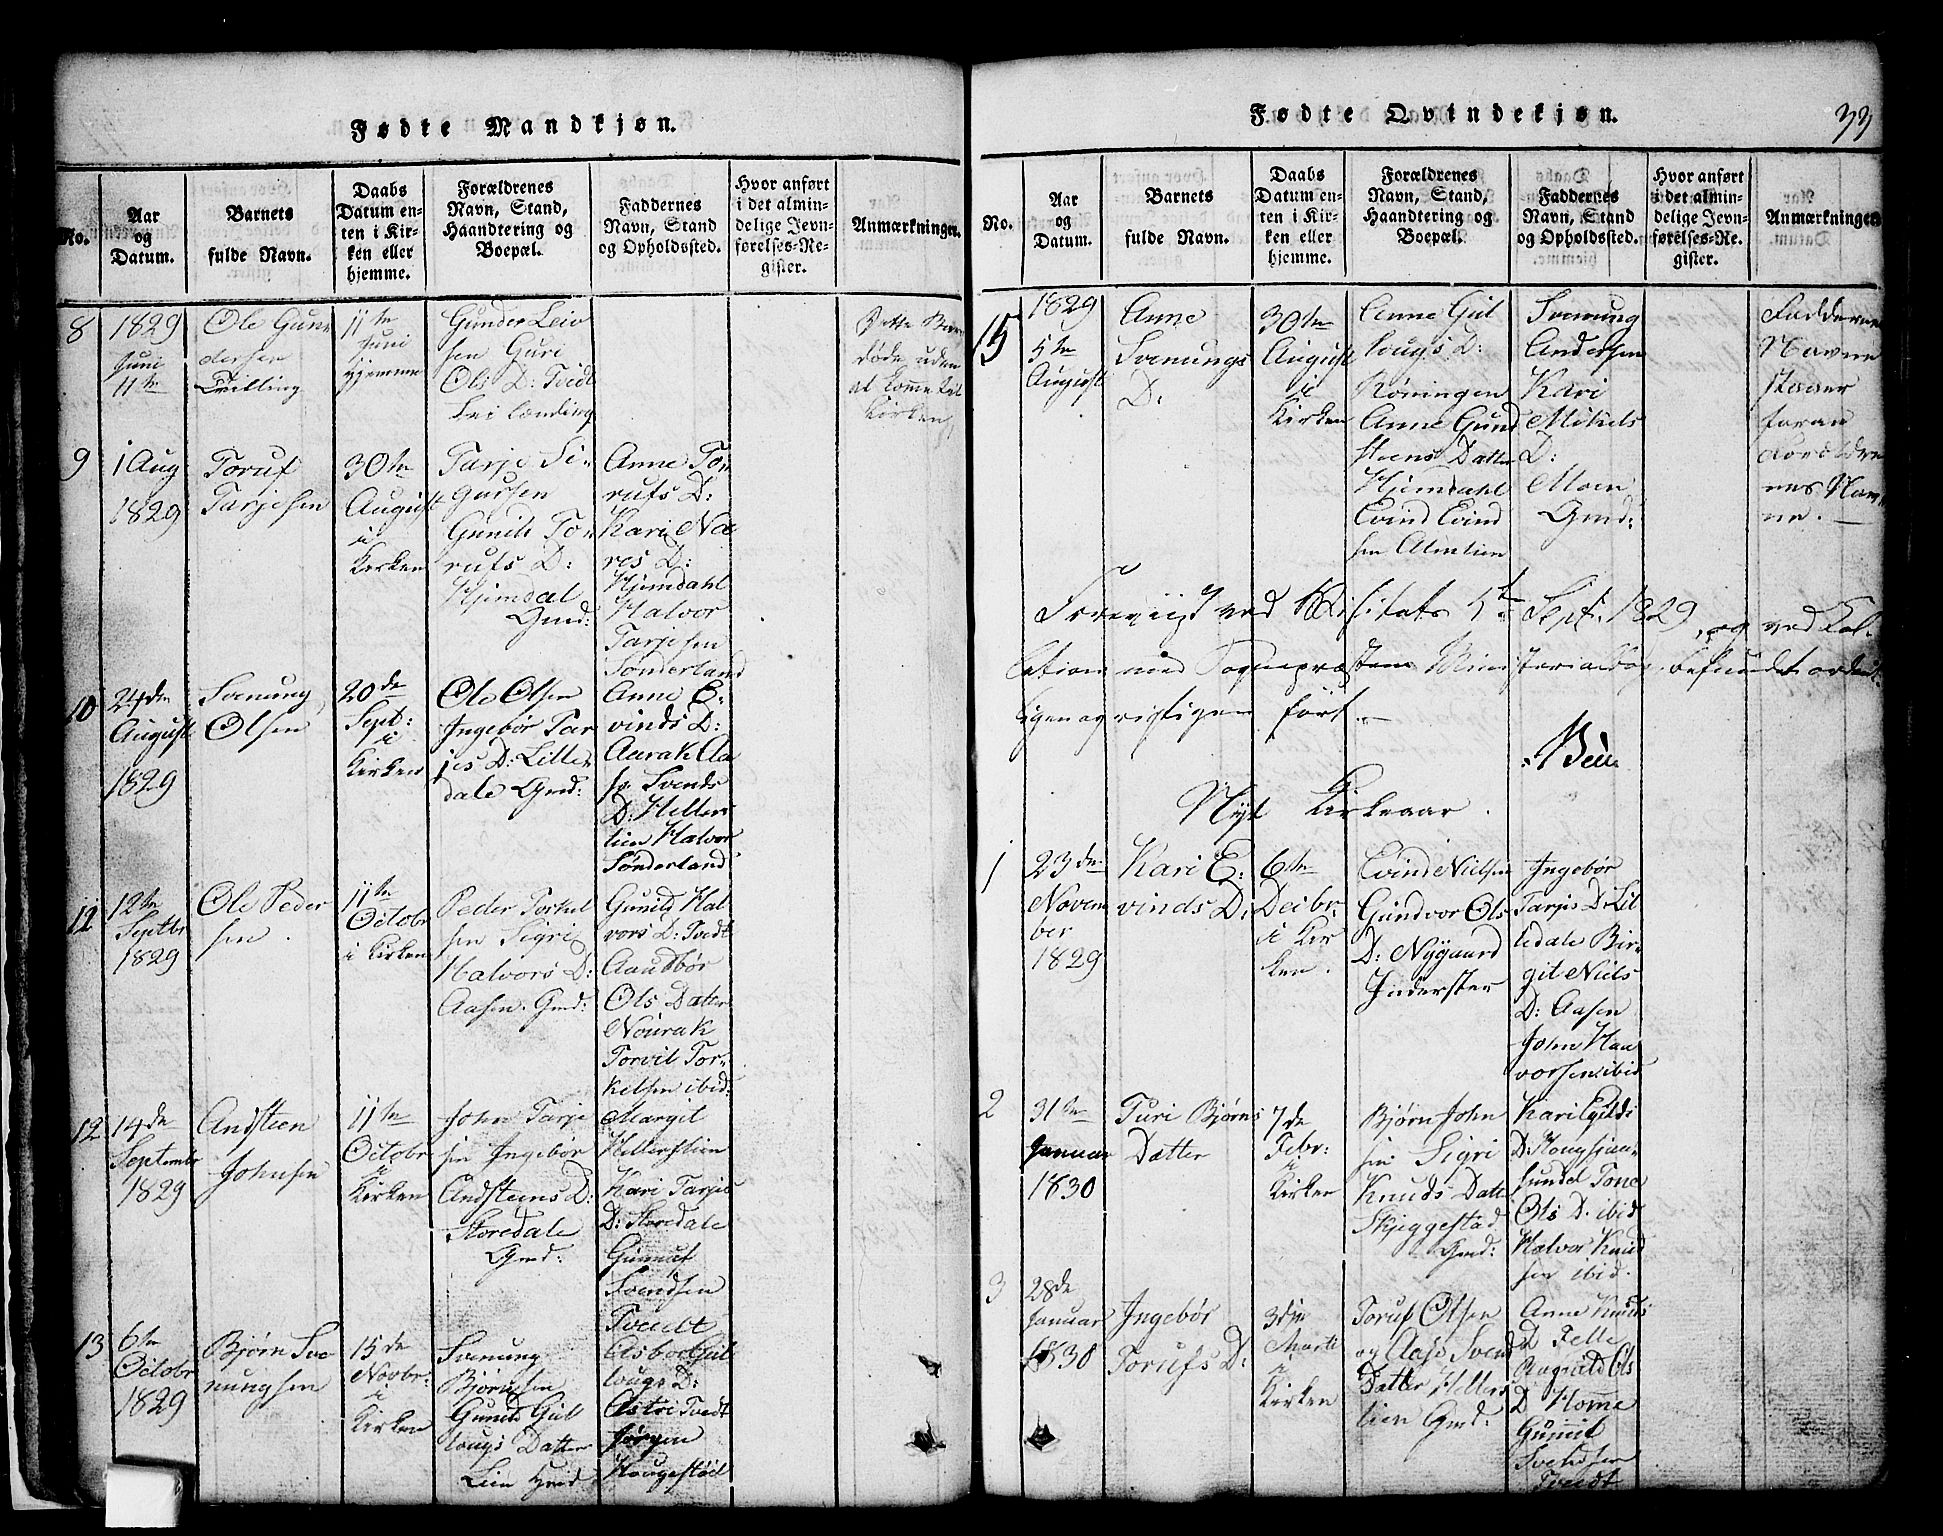 Fødte Mandkjøn.
No.
Aar
og
Datum.
Barnets
fulde Navn.
Daabs
Datum en-
ten i Kir-
ken eller
hjemme.
Forældrenes
Navn, Stand,
Haandtering og
Boepæl.
Faddernes
Navn, Stand
og Opholdssted.
Hvor anført
i det almin-
delige Jevn-
førelses-Re-
gister.
Anmærkninger.
8
1829
Juni
11te
Ole Gun
dersen
Tvilling
11te
Juni
Hjemme
Gunder Leiv
sen Guri
Ols D: Tvedt
Lei lænding
Dette Barn
døde uden
at komme til
Kirken
9
1 Aug
1829
Toruf
Tarjesen
30te
August
i
Kirken
Tarje Si-
gursen
Gunild To-
rufs D:
Hjemdal
Gmd:
Anne To-
rufs D:
Kari Na
res D:
Hjemdahl
Halvor
Tarjesen
Sønderland
10
24de
August
1829
Svenung
Olsen
20de
Sept:
i
Kirken
Ole Olsen
Ingebør Tar
jes D: Lille
dale Gmd:
Anne E-
vinds D:
Aarak Aa
se Svends
D: Hellers
lien Halvor
Sønderland
11
12te
Septbr
1829
Ole Peder
sen.
11te
Octobr
i Kirken
Peder Torkel
sen Sigri
Halvors D:
Aasen. Gmd:
Gunild Hal
vors D: Tvedt
Aandbør
Ols Datter
Nourak
Torvil Tor-
kelsen ibid:
12
14de
Septembr
1829
Andsteen
Johnsen
11te
Octobr
i
Kirken
John Tarje
sen Ingebør
Andsteens D:
Storedale
Gmd:
Margit
Hellerslien
Kari Tarjes
D: Storedale
Gunnuf
Svendsen
Tveedt
13
6te
Octobr
1829
Bjørn Sve
nungsen
15de
Novbr:
i
Kirken
Svenung
Bjørnsen
Gunild Gul
lougs Datter
Lien Gmd
Asbor Gul
lougs D:
Astri Tvedt
Jørgen
Hougestøel
Fødte Qvindekjøn.
33
No.
Aar
og
Datum.
Barnets
fulde Navn.
Daabs
Datum en-
ten i Kir-
ken eller
hjemme.
Forældrenes
Navn, Stand,
Haandtering og
Boepæl.
Faddernes
Navn, Stand
og Opholdssted.
Hvor anført
i det almin-
delige Jevn-
førelses-Re-
gister.
Anmærkninger
15
1829
5te
August
Anne
Svenungs
D:
30te
August
i
Kirken
Anne Gul
lougs D:
Røningen
Anne Gund
steens Datter
Hjemdahl
Evind Evind
sen
Svenung
Andersen
Kari
Mikels
D:
Moen
Gmd:
Faddernes
Navne
staaer
foran
Forældre
nes Nav
ne. —
Foreviist ved Visitats 5te Sept: 1829, og ved Col-
lation med Sognepræstens Ministerialbog befundet ordent-
ligen og rigtigen ført.
Nyt Kirkeaar.
1
23de
Novem
ber
1829
Kari E-
vinds D:
6te
Decbr-
i Kir
ken.
Evind Nielsen
Gundvor Ols
D: Nygaard
Inderster
Ingebør
Tarjes D: Lil
ledale Bir-
git Niels
D: Aasen
John Haa
vorsen ibid
2
31te
Januar
1830
Turi Bjørns
Datter
7de
Febr-
i
Kirken
Bjørn John
sen Sigri
Knuds Datt
Skjeggestad
Gmd:
Kari Egilds
D:
sundel Tone
Ols D. ibid
Halvor Knud
sen ibid.
3
28de
Januar
1830
Ingebør
Torufs D:
3die
Marti
i
Kirken
Toruf Olsen
og Aase Svend
Datter Hellers
lien Gmd:
Anne Knuds
D Felle
Ragnild Ols
D Homme
Gunnuf
Svendsen
Tveedt